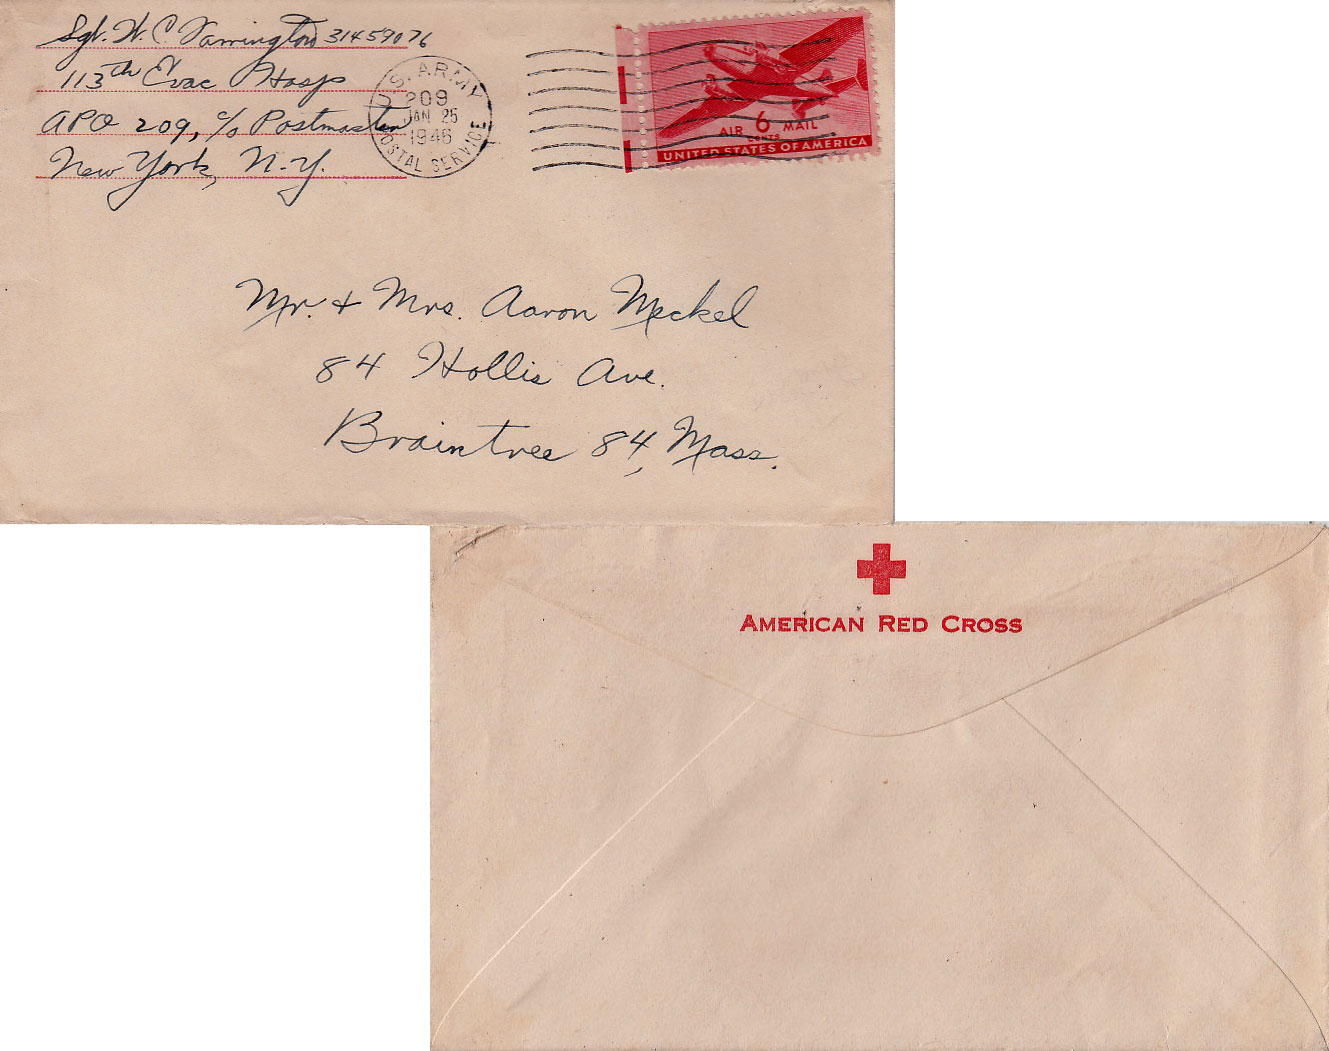 Sgt. W. C. Farrington 31459076
113th Evac Hosp
APO 209, c/o Postmaster
New York, N.Y.
U.S. ARMY
209
JAN 25
1946
POSTAL SERVICE
AIR 6 MAIL
CENTS
UNITED STATES OF AMERICA
Mr. + Mrs. Aaron Meckel
84 Hollis Ave.
Braintree 84, Mass.
AMERICAN RED CROSS